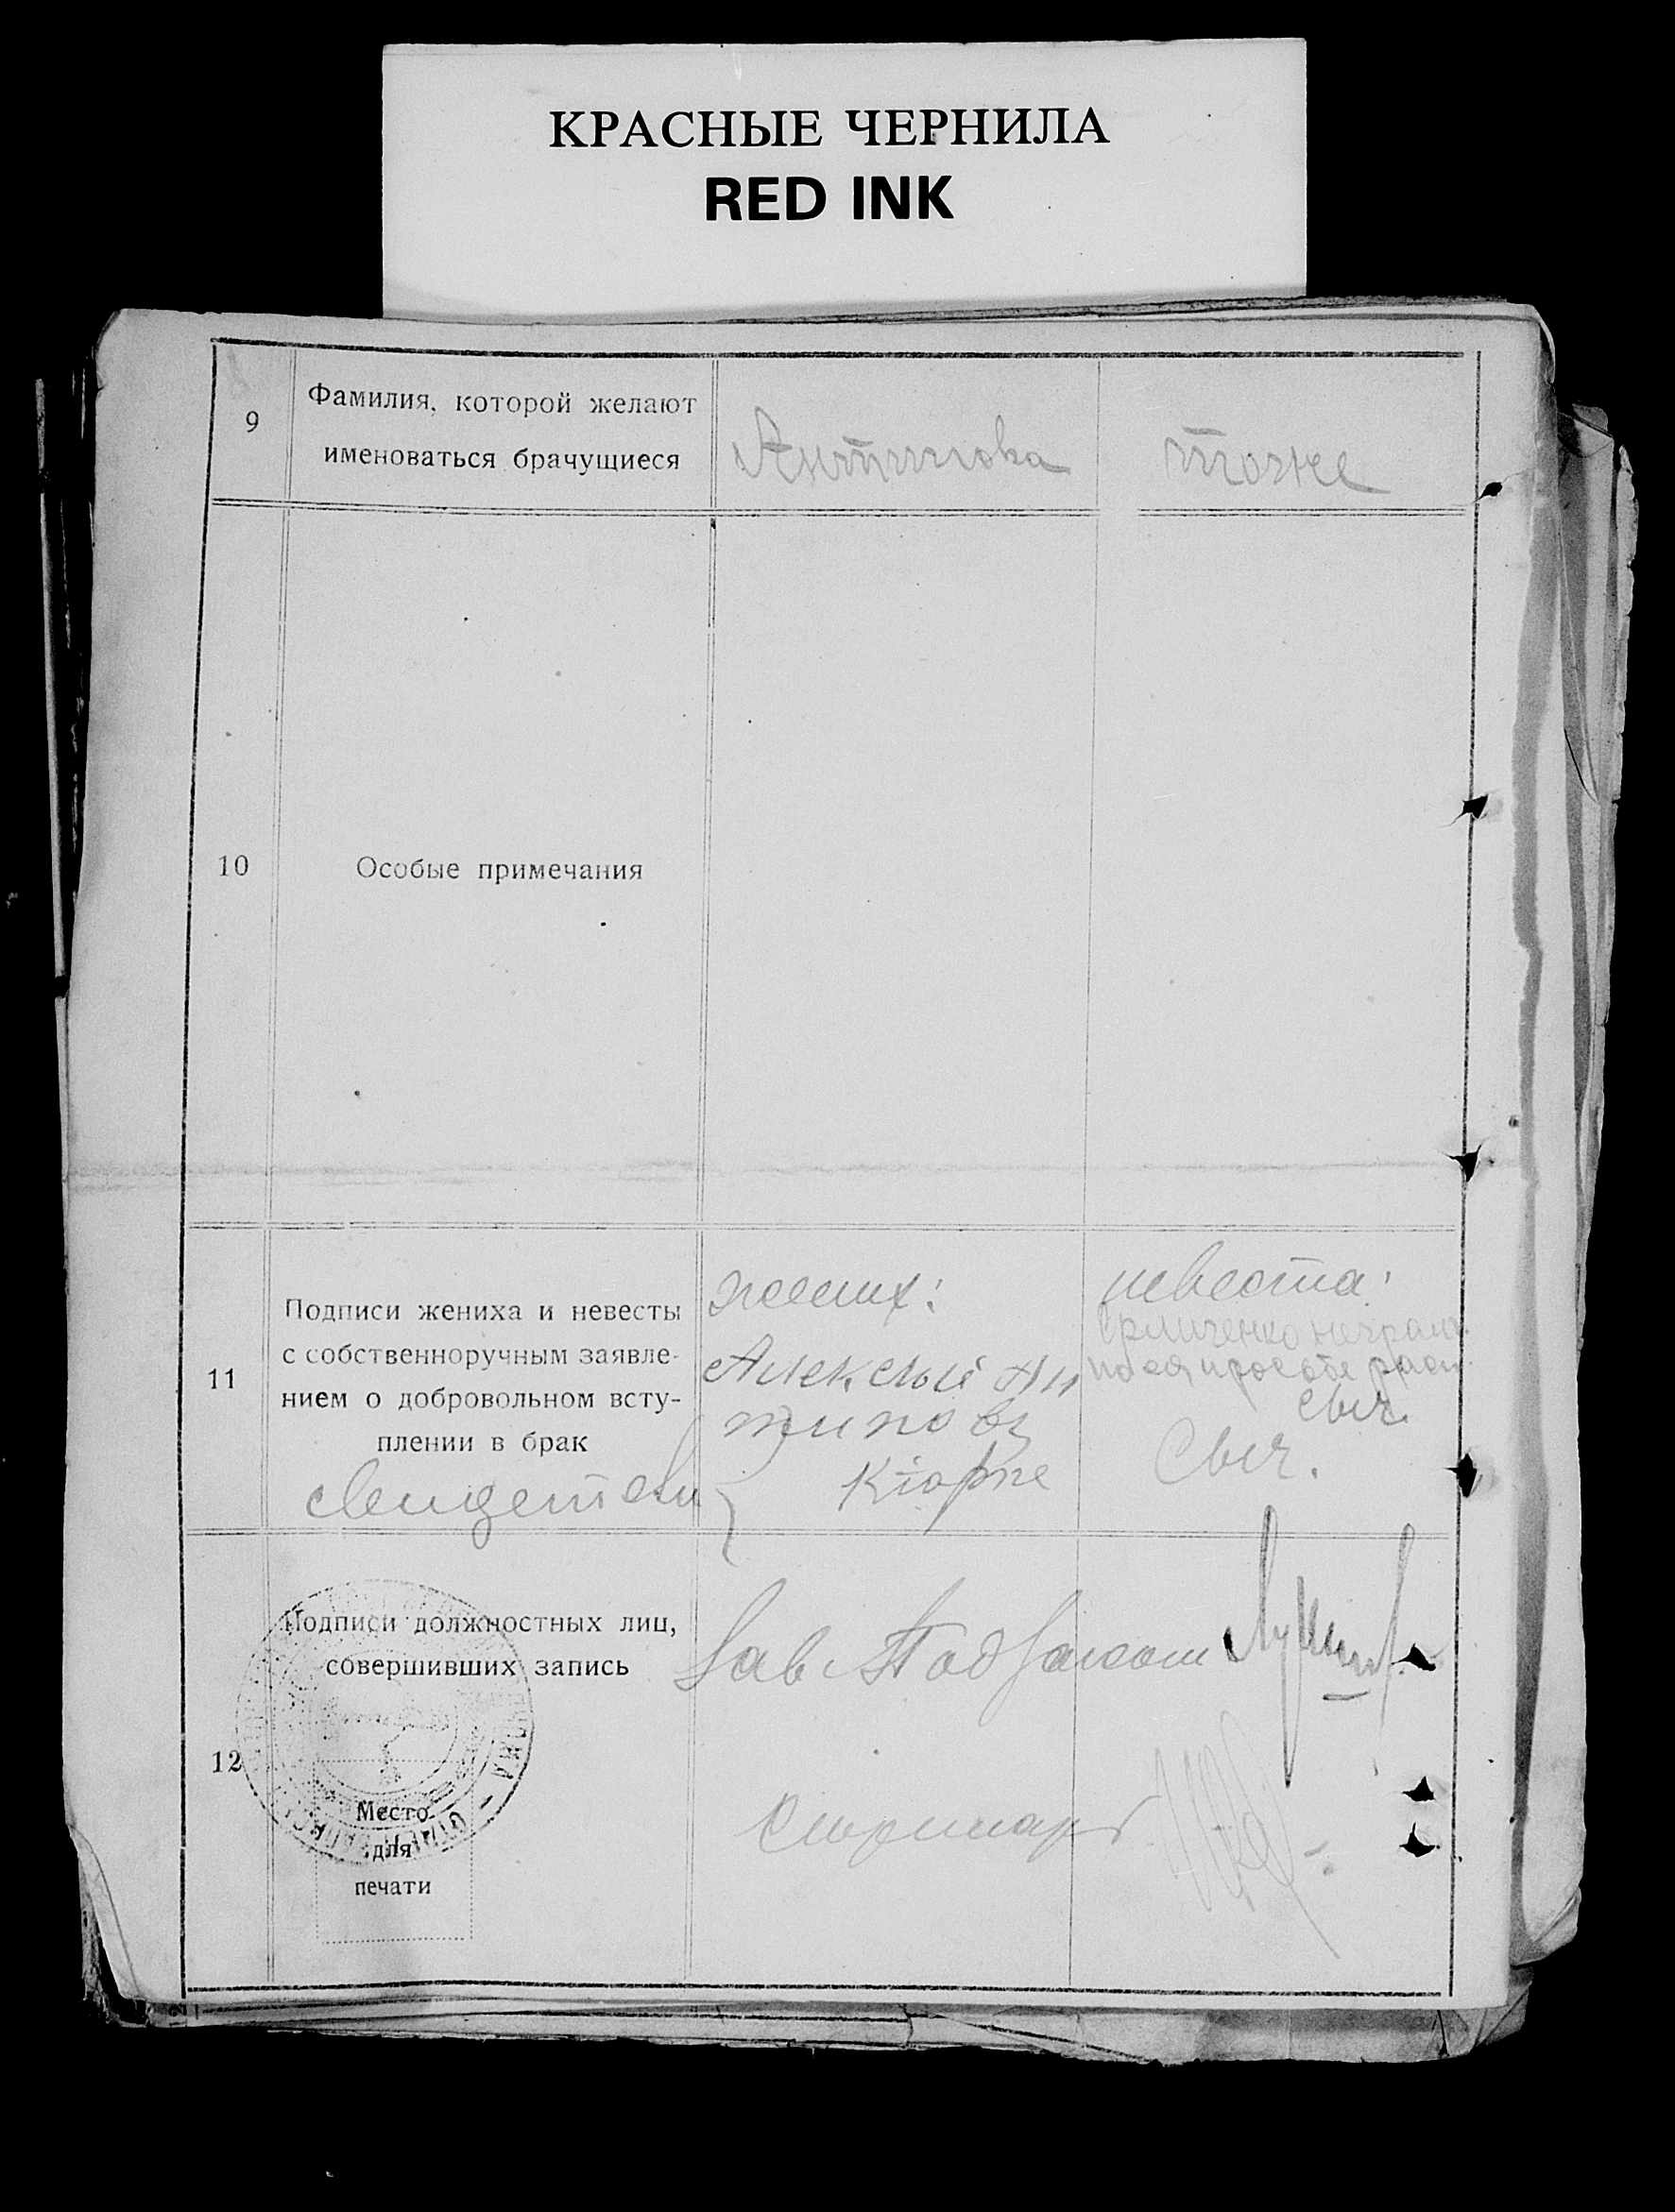 КРАСНЫЕ ЧЕРНИЛА
RED INK
9
Фамилия, которой желают
именоваться брачущиеся
Антипова
тоже
10
Особые примечания
11
Подписи жениха и невесты
с собственноручным заявле-
нием о добровольном всту-
плении в брак
свидетели
жених:
Алексей Ан
типовъ
невеста:
неграм.
по ея просьбе расп.
Сыч.
Сыч.
12
Подписи должностных лиц,
совершивших запись
Зав Подзагсом
Секретарь
Место
для
печати